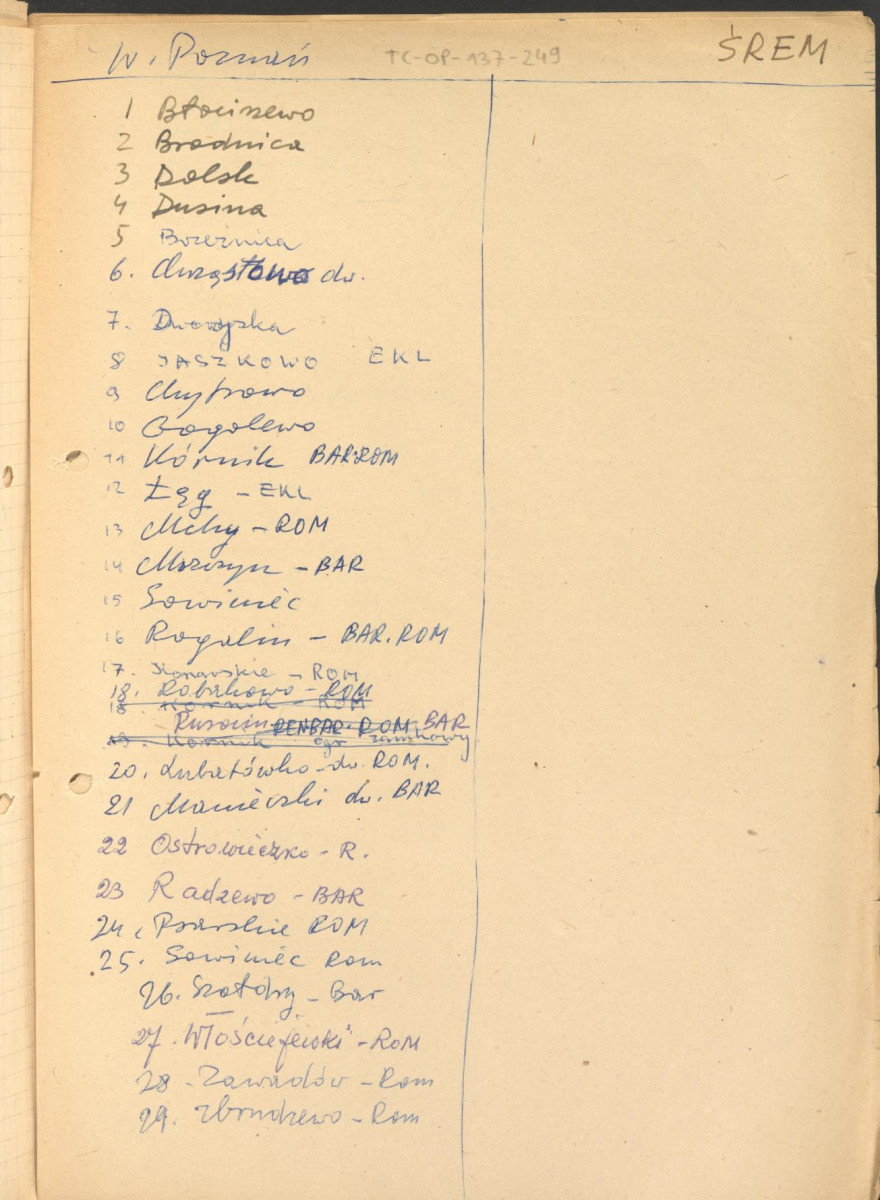 W. Poznań TC-OP-137-249 ŚREM
1 Błociszewo
2 Brodnica
3 Dolsk
4 Dusina
5 Brzeźnica
6. Chrząstowo dw.
7. Drzonek
8 JASZKOWO EKL
9 Chytrowo
10 Gogolewo
11 Kórnik BAR.ROM
12 Łęg - EKL
13 Mchy - ROM
14 Morszyn - BAR
15 Sowiniec
16 Rogalin - BAR. ROM
17. - ROM
18. Robakowo - ROM
18 Kórnik - ROM
Rusocin RENBAR ROM BAR
19. Kórnik ogr zamkowy
20. Lubiatówko - dw. ROM.
21 Manieczki dw. BAR
22 Ostrowieczko - R.
23 Radzewo - BAR
24. Psarskie ROM
25. Sowiniec Rom
26. Szołdry - Bar
27. Włościejewki - ROM
28 - Zawadów - Rom
29. Zbrudzewo - Rom